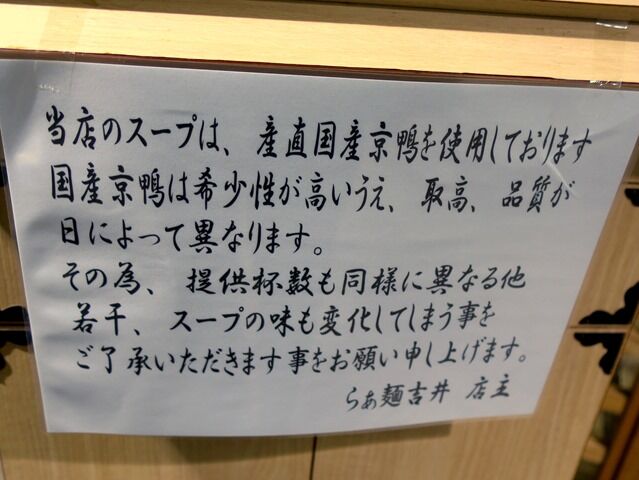 当店のスープは、産直国産京鴨を使用しております
国産京鴨は希少性が高いうえ、取高、品質が
日によって異なります。
その為、提供杯数も同様に異なる他
若干、スープの味も変化してしまう事を
ご了承いただきます事をお願い申し上げます。
らぁ麺吉井 店主